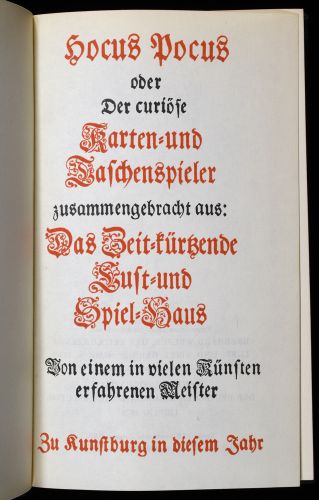 Hocus Pocus
oder
Der curiöse
Karten-und
Taschenspieler
zusammengebracht aus:
Das Zeit-kürtzende
Lust-und
Spiel-Haus
Von einem in vielen Künsten
erfahrenen Meister
Zu Kunstburg in diesem Jahr